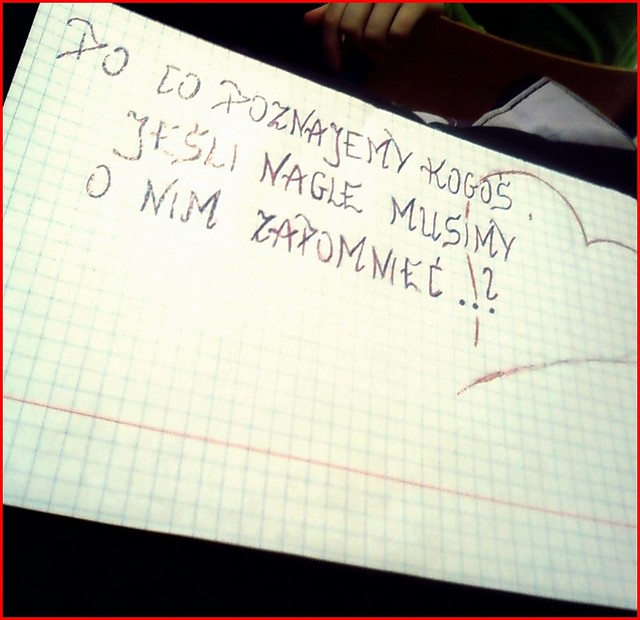 PO CO POZNAJEMY KOGOŚ,
JEŚLI NAGLE MUSIMY
O NIM ZAPOMNIEĆ..?